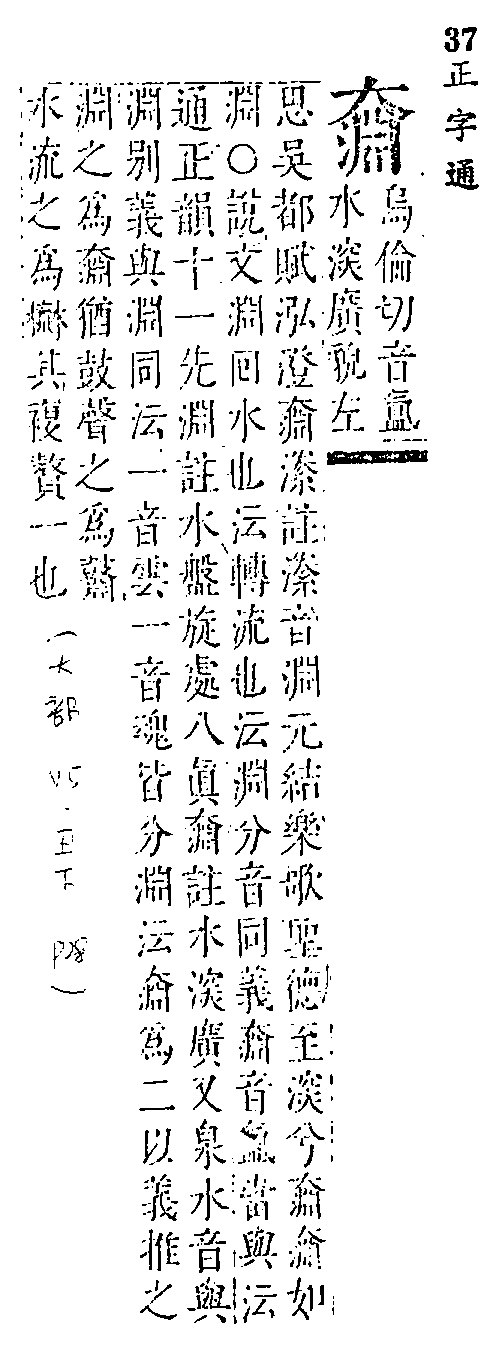 37 正字通
奫
烏倫切音氳
水深廣貌左
思吳都賦泓澄奫潫註潫音淵元結樂歌聖德至深兮奫奫如
淵○說文淵回水也沄轉流也沄淵分音同義奫音氳當與沄
通正韻十一先淵註水盤旋處八眞奫註水深廣又泉水音與
淵别義與淵同沄一音雲一音魂皆分淵沄奫爲二以義推之
淵之爲奫猶鼓聲之爲鼘
水流之爲其複贅一也
(大部 丑下)